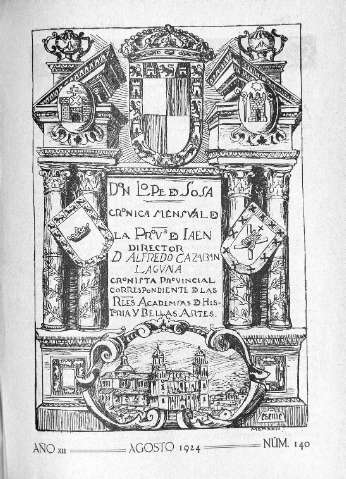 DON LOPE DE SOSA
CRONICA MENSVAL DE
LA PROVª DE JAEN
DIRECTOR
D. ALFREDO CAZABAN
LAGUNA
CRONISTA PROVINCIAL
CORRESPONDIENTE DE LAS
RLES ACADEMIAS DE HIS-
TORIA Y BELLAS ARTES.
AÑO XII AGOSTO 1924 NÚM. 140